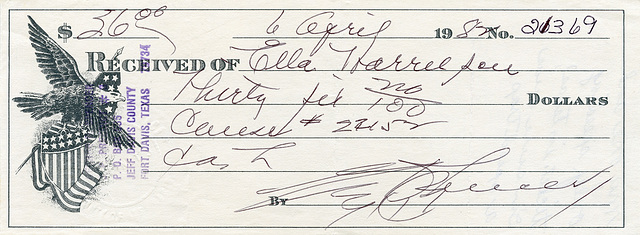 $ 36 00 6 April 1982 No. 21369
RECEIVED OF Ella Harrelson
Thirty six no/100 DOLLARS
# 22152
Cash
BY
P. O. B
JEFF DAVIS COUNTY
FORT DAVIS, TEXAS 79734